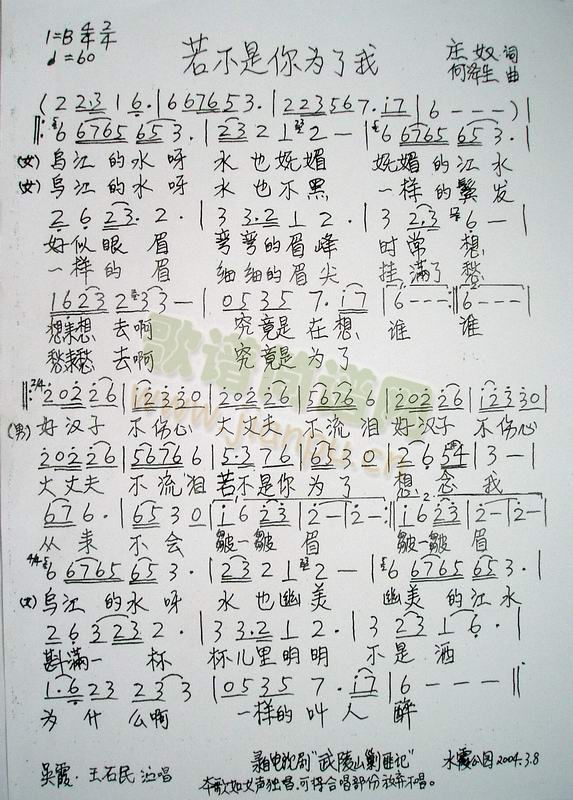 1=B 4/4 2/4
♩=60
若不是你为了我
庄奴 词
何泽生 曲
(2 2·3 1 6· | 6 6765 3· | 2 23567·i7 | 6 - - - )|
6 6765 653· | 23 2 1 2 - | 6 6765 653· |
(女) 乌江的水呀 水也妩媚 妩媚的江水
(女) 乌江的水呀 水也不黑 一样的鬓发
2 6 23· 2· | 3 3·2 1 2· | 3 2·3 6 - |
好似眼眉 弯弯的眉峰 时常想
一样的眉 细细的眉尖 挂满了愁
1623 2 33 - | 0535 7· i7 | 6 - - - :| 6 - - - |
想来想去啊 究竟是在想谁 谁
愁来愁去啊 究竟是为了
2/4 202 26 | i2330 | 202 26 | 56766 | 202 26 | i2330 |
(男) 好汉子 不伤心 大丈夫 不流泪 好汉子 不伤心
202 26 | 56766 | 5·3 76 | 63 50 | 26 54 | 3 - |
大丈夫 不流泪 若不是你为了想念我
67 6· | 65 30 | i6 23 | 2 - | 2 - :| i6 23 | 2 - | 2 - |
从来不会 皱一皱眉 皱一皱眉
4/4 6 6765 653· | 23 2 1 2 - | 6 6765 653· |
(女) 乌江的水呀 水也幽美 幽美的江水
26 323 2· | 3 3·2 1 2· | 3 23 1 6· |
斟满一杯 杯儿里明明不是酒
1·6 23 2 33 | 0535 7· i7 | 6 - - - |
为什么啊 一样的叫人醉
吴霞·王石民 演唱
录自电视剧"武陵山剿匪记"
水霞公园2004.3.8
本歌如女声独唱,可将合唱部份放弃不唱。
歌谱简谱网
www.jianpu.cn